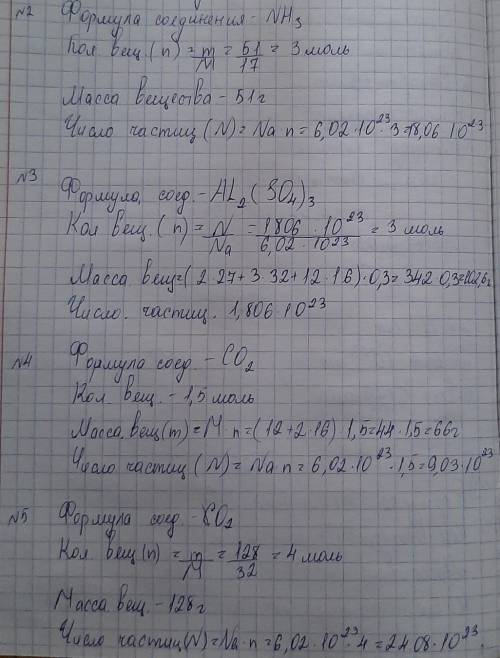 №2 Формула соединения - NH₃
Кол вещ. (n) = m/M = 51/17 = 3 моль
Масса вещества - 51г
Число частиц (N) = Na n = 6,02·10²³·3=18,06·10²³
№3 Формула соед. - AL₂(SO₄)₃
Кол вещ. (n) = N/Na = 1806·10²³/6,02·10²³ = 3 моль
Масса вещ=(2·27+3·32+12·16)·0,3=342·0,3=102,6г
Число. частиц. 1,806·10²³
№4 Формула соед. - CO₂
Кол. вещ. - 1,5 моль
Масса вещ(m)=M·n=(12+2·16)·1,5=44·1,5=66г
Число частиц (N) = Na n = 6,02·10²³·1,5=9,03·10²³
№5 Формула соед. - O₂
Кол вещ (n) = m/M = 128/32 = 4 моль
Масса вещ. - 128г
Число частиц(N)=Na·n=6,02·10²³·4=24 08·10²³.